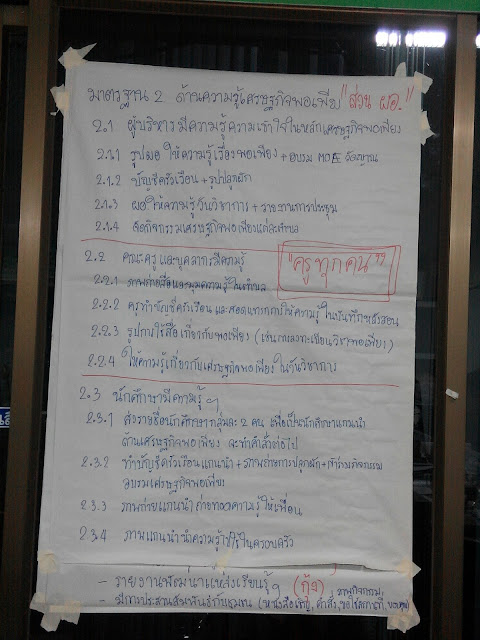 มาตรฐาน 2 ด้านความรู้เศรษฐกิจพอเพียง "ส่วน ผอ."
2.1 ผู้บริหารมีความรู้ความเข้าใจในหลักเศรษฐกิจพอเพียง
2.1.1 รูปผอ ให้ความรู้เรื่องพอเพียง + อบรม MOE
2.1.2 บัญชีครัวเรือน + รูปปลูกผัก
2.1.3 ผอให้ความรู้วันวิชาการ + รายงานการประชุม
2.1.4 จัดกิจกรรมเศรษฐกิจพอเพียงแต่ละตำบล
2.2 คณะครู และบุคลากรมีความรู้
"ครูทุกคน"
2.2.1 ภาพถ่ายสื่อและมุมความรู้ในตำบล
2.2.2 ครูทำบัญชีครัวเรือน และสอดแทรกการให้ความรู้ในบันทึกหลังสอน
2.2.3 รูปการใช้สื่อ เกี่ยวกับพอเพียง (เช่นการลงทะเบียนวิชาพอเพียง)
2.2.4 ให้ความรู้เกี่ยวกับเศรษฐกิจพอเพียง ในวันวิชาการ
2.3 นักศึกษามีความรู้ ฯ
2.3.1 ส่งรายชื่อนักศึกษากลุ่มละ 2 คน เพื่อเป็นนักศึกษาแกนนำ
ด้านเศรษฐกิจพอเพียง จะทำคำสั่งต่อไป
2.3.2 ทำบัญชีครัวเรือนแกนนำ + ภาพถ่ายการปลูกผัก + เข้าร่วมกิจกรรม
อบรมเศรษฐกิจพอเพียง
2.3.3 ภาพถ่ายแกนนำ ถ่ายทอดความรู้ให้เพื่อน
2.3.4 ภาพแกนนำนำความรู้ไปใช้ในครอบครัว
- รายงานพัฒนาแหล่งเรียนรู้ฯ (กุ้ง) ภาพกิจกรรม,
- มีการประสานสัมพันธ์กับชุมชน (หนังสือเชิญ, คำสั่ง, ขอใช้สถานที่, ขอบคุณ)